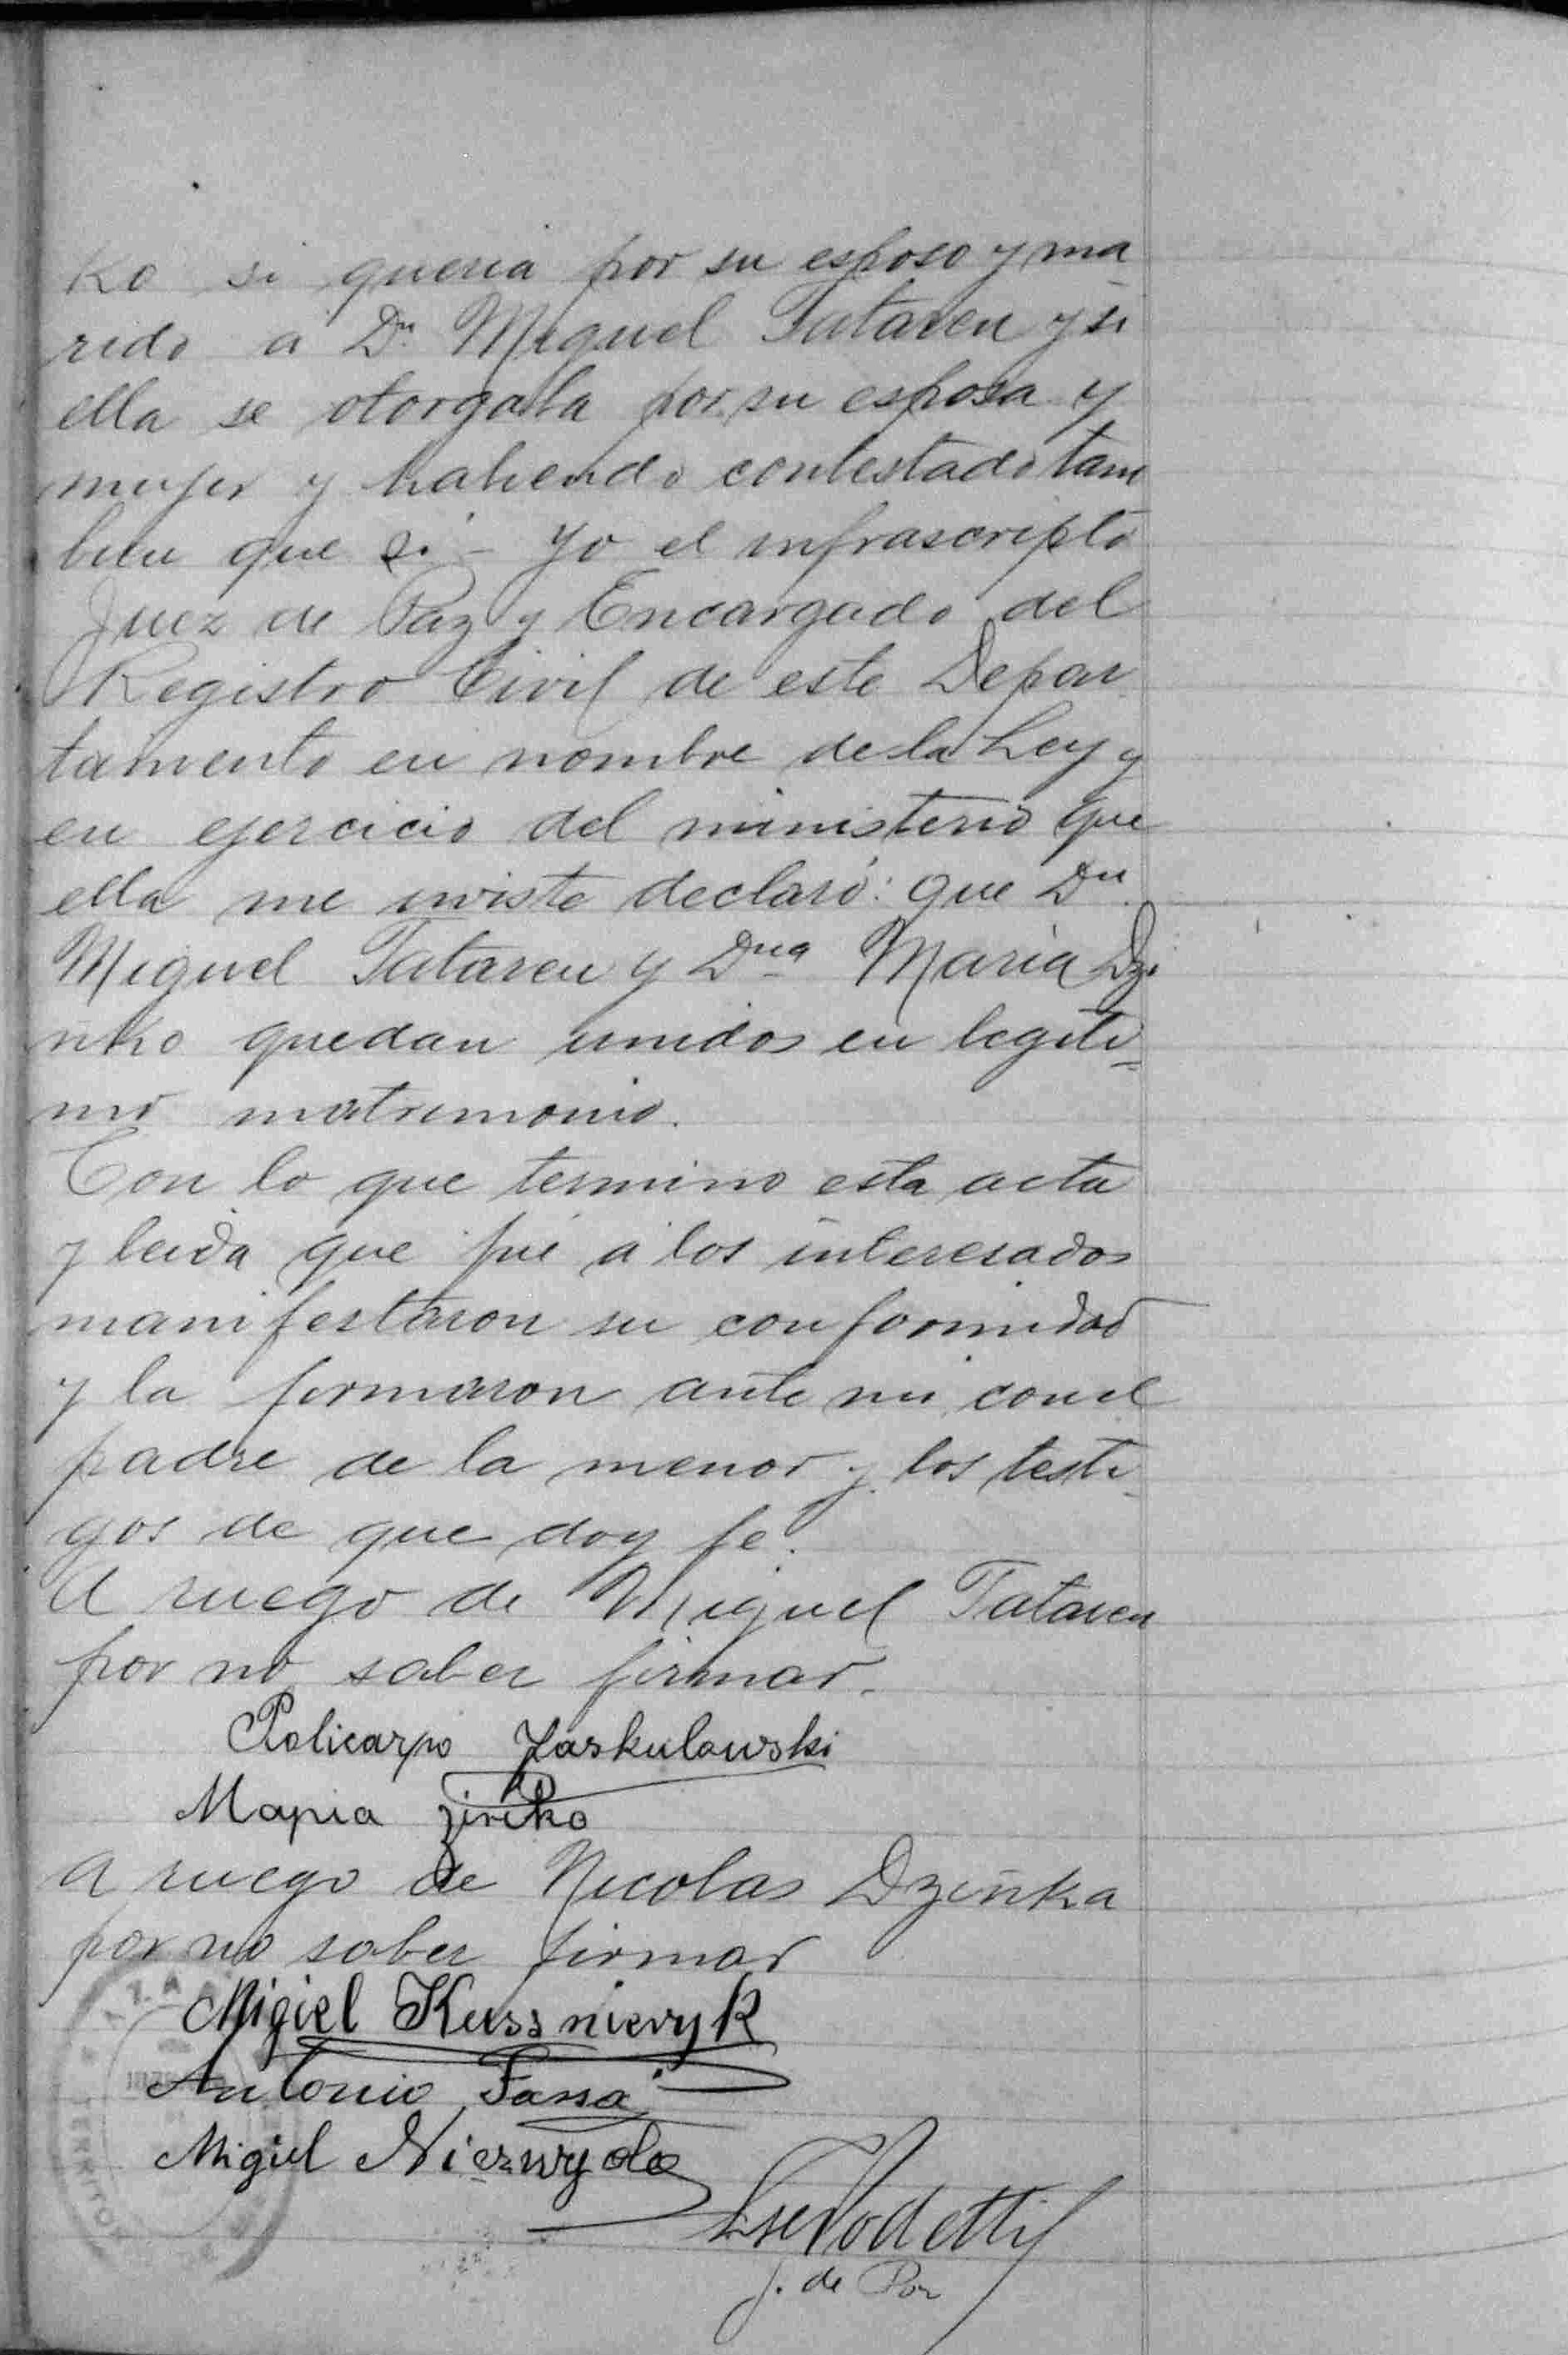 ko si queria por su esposo y ma
rido á Dn Miguel Tataren y si
ella se otorgaba por su esposa y
mujer y habiendo contestado tam
bien que si – Yo el infrascripto
Juez de Paz y Encargado del
Registro Civil de este Depar
tamento en nombre de la Ley y
en ejercicio del ministerio que
ella me inviste declaró: que Dn
Miguel Tataren y Dna Maria Dzi
ñko quedan unidos en legiti-
mo matrimonio.
Con lo que termino esta acta
y leida que fué á los interesados
manifestaron su conformidad
y la firmaron ante mi, con el
padre de la menor y los testi-
gos de que doy fe.
A ruego de Miguel Tataren
por no saber firmar.
Policarpo Jaskulowski
Мария
A ruego de Nicolas Dziñka
por no saber firmar
Migiel Kussnieryk
Antonio
Migiel
J. de Paz
TERRITOR